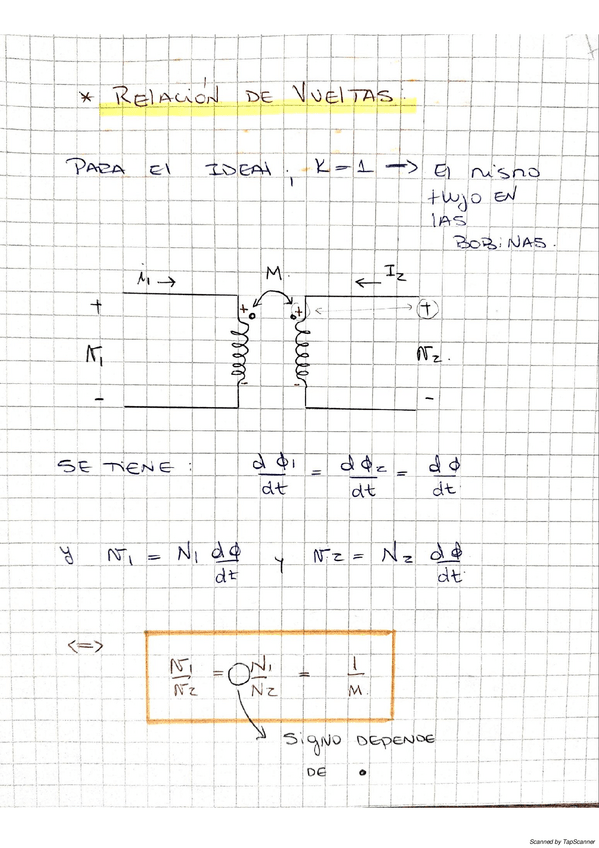 * RELACIÓN DE VUELTAS:
PARA EL IDEAL, K=1 → El mismo
flujo EN
lAS
BOBINAS.
i₁ → M. ← I₂
+ + + +
N₁ N₂.
- - - -
SE TIENE: dϕ₁/dt = dϕ₂/dt = dϕ/dt.
y N₁ = N₁ dϕ/dt y N₂ = N₂ dϕ/dt.
<=> N₁/N₂ = ○ N₁/N₂ = 1/M.
SIGNO DEPENDE
DE •
Scanned by TapScanner